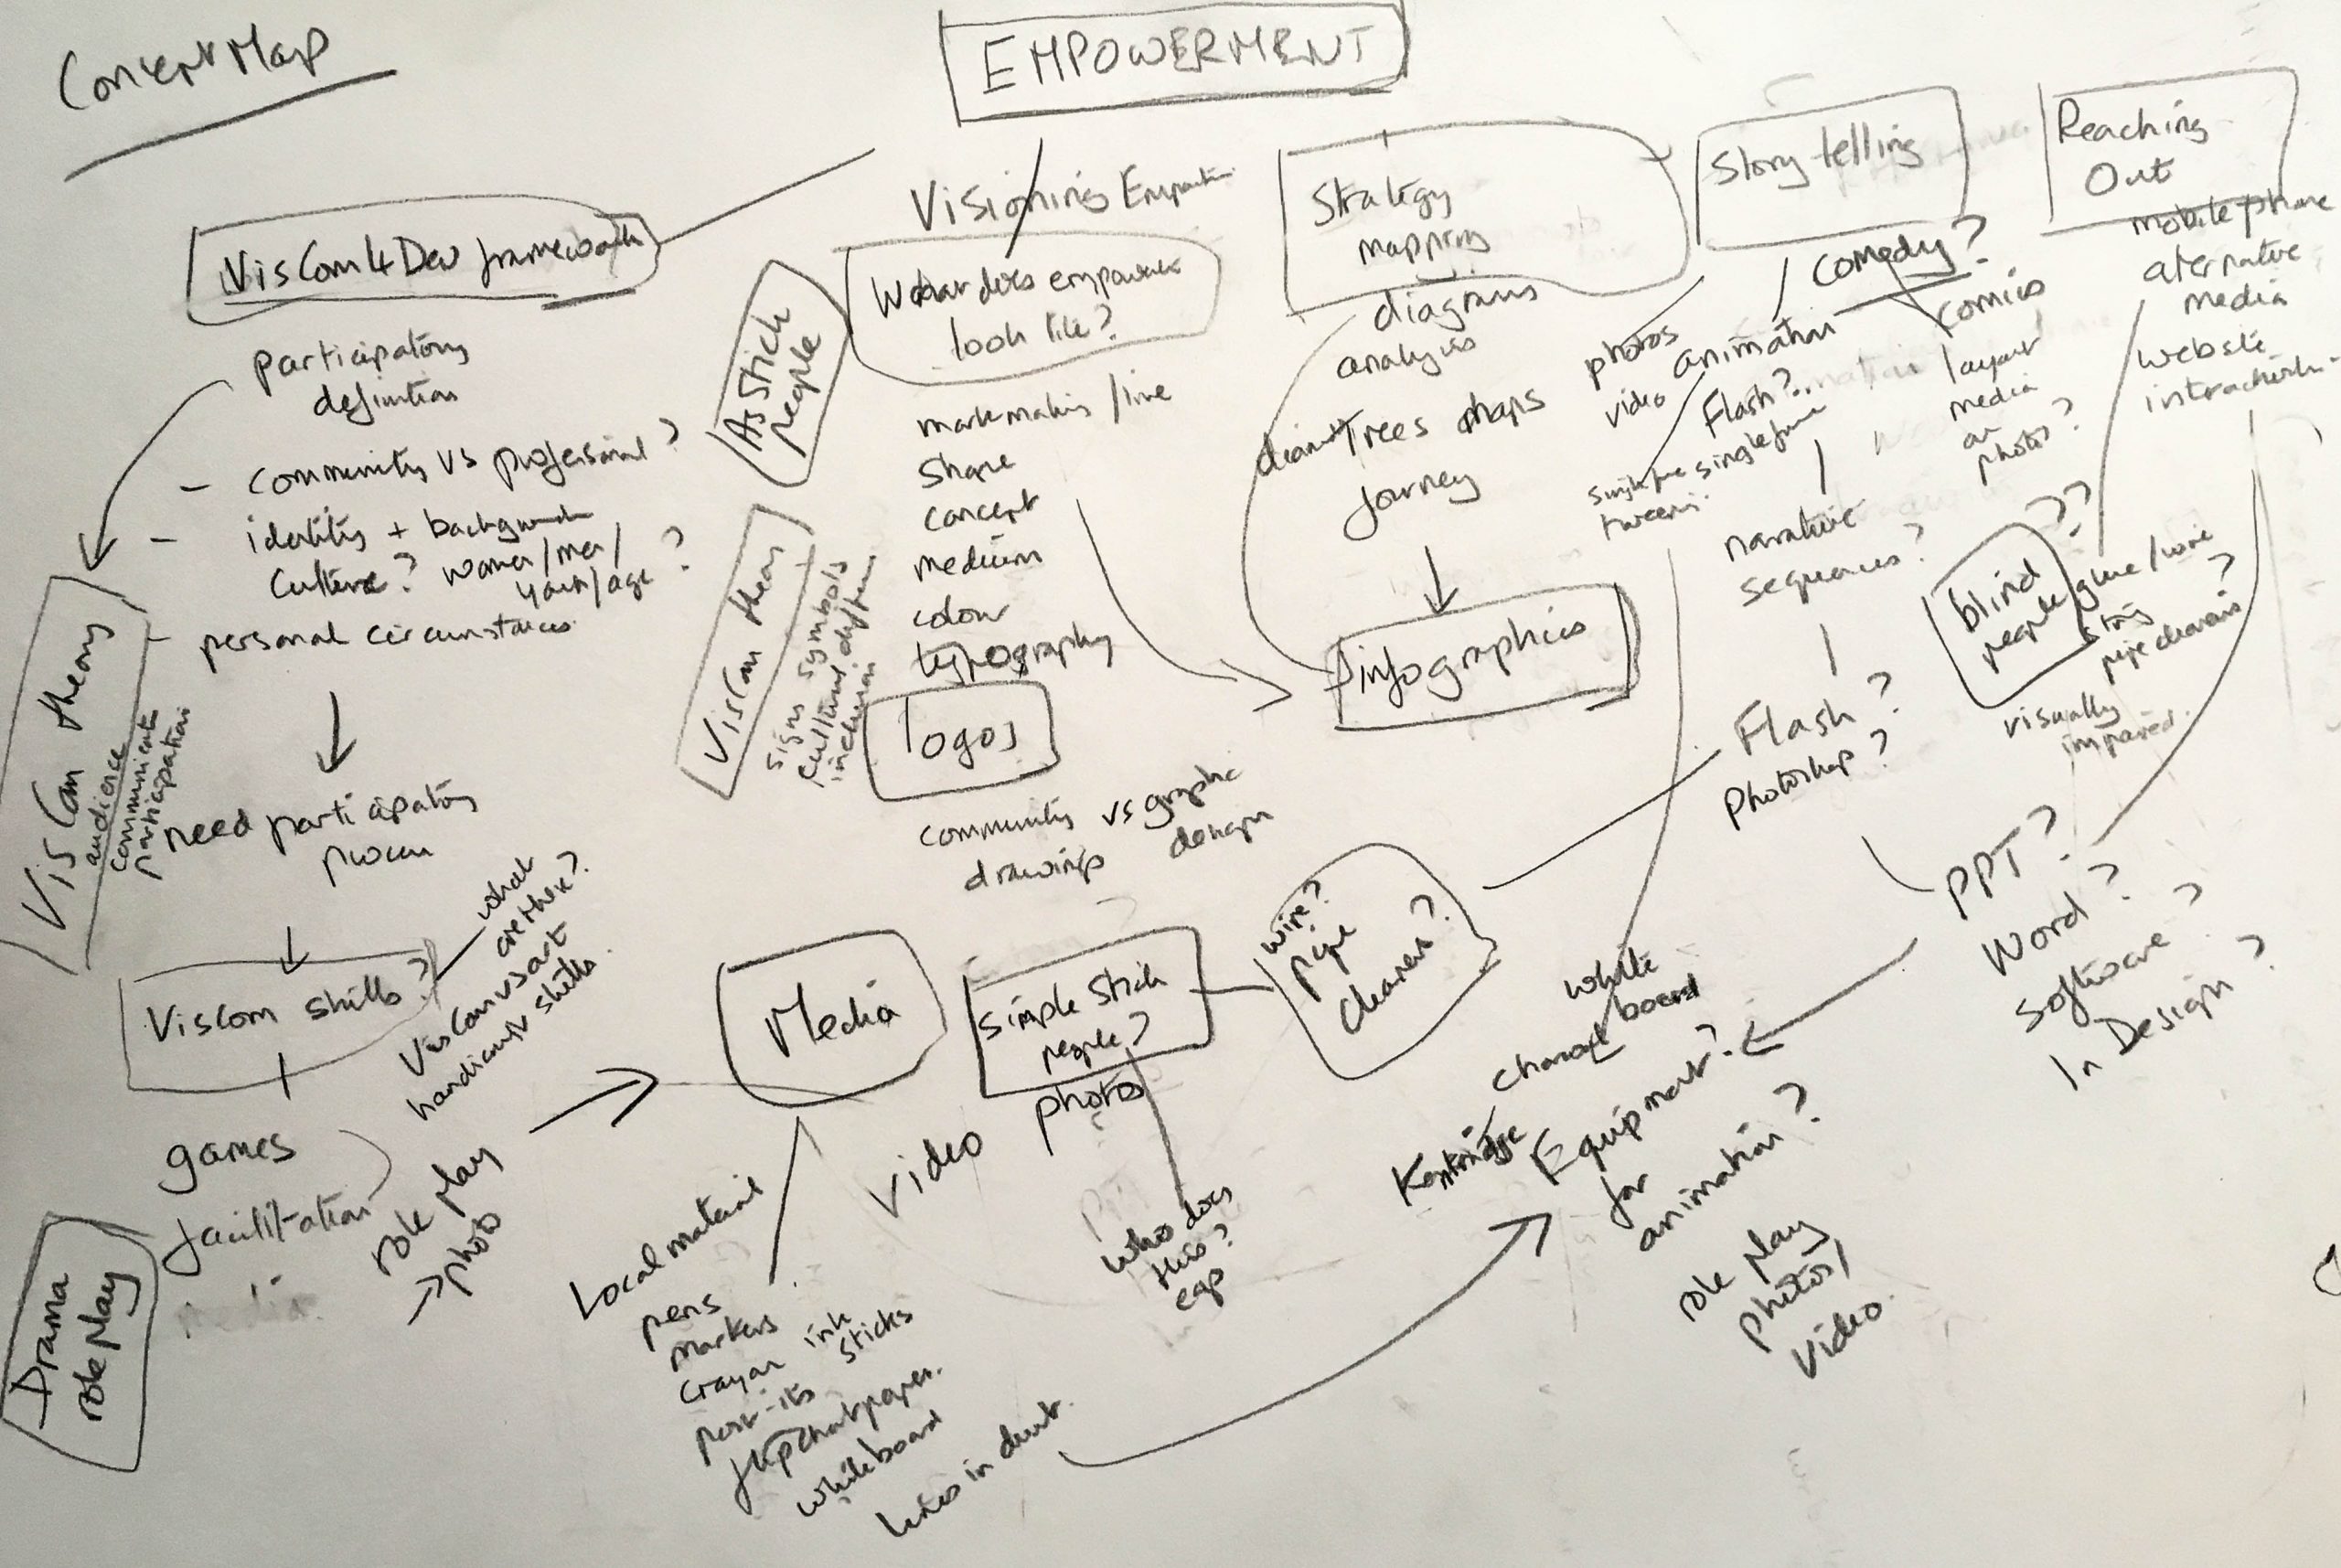 Concept Map
EMPOWERMENT
VisCom4Dev framework
participatory
definition
- community vs professional?
- identity + background
culture? women/men/
youth/age?
- personal circumstances
VisCom theory
audience
communicate
participation
need participatory
process
VisCom skills?
what
are these?
VisCom vs art
handicraft skills.
games
facilitation
media
role play
→ photo
Drama
role play
Visioning
What does empowerment
look like?
As Stick
people
mark making / line
Shape
concept
medium
colour
typography
VisCom theory
signs symbols
cultural different
inclusion
logos
community vs graphic
drawings designer
Strategy
mapping
diagrams
analysis
Trees maps
Journey
infographics
Story telling
comedy?
photos
video
animation
Flash?..
single frame
tweening
comics
layout
media
or
photos?
narrative
sequences?
Flash?
Photoshop?
Reaching
Out
mobile phone
alternative
media
website
??
blind
people
glue/wire
string
pipe cleaners?
visually
impaired.
PPT?
Word?
Software?
In Design?
Media
Simple Stick
people?
photos
video
wire?
pipe
cleaners?
who does
this?
egs
Local material
pens
markers
crayon ink
sticks
post-its
flipchart paper.
whiteboard
lines in dust.
white
board
charcoal
Kentridge
Equipment?
for
animation?
role play
photos/
video.